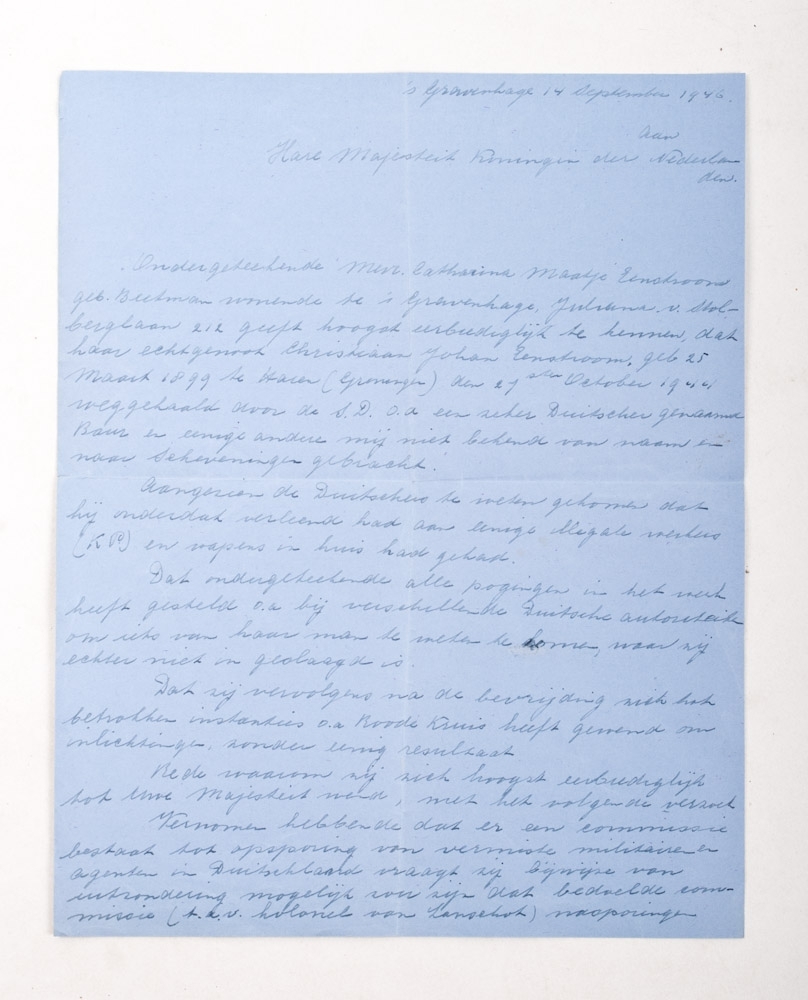 's Gravenhage 14 September 1946.
Aan
Hare Majesteit Koningin der Nederlan
den.
Ondergeteekende Mevr. Catharina Maatje Eenstroom
geb. Beetman wonende te 's Gravenhage, Juliana v. Stol-
berglaan 212 geeft hoogst eerbiediglijk te kennen, dat
haar echtgenoot Christiaan Johan Eenstroom, geb 25
Maart 1899 te Haren (Groningen) den 27 sten October 1944
weggehaald door de S.D. o.a een zeker Duitscher genaamd
Baur en eenige andere mij niet bekend van naam en
naar Scheveningen gebracht.
Aangezien de Duitschers te weten gekomen dat
hij onderdak verleend had aan eenige illegale werkers
(K P) en wapens in huis had gehad.
Dat ondergeteekende alle pogingen in het werk
heeft gesteld o.a bij verschillende Duitsche autoriteiten
om iets van haar man te weten te komen, waar zij
echter niet in geslaagd is.
Dat zij vervolgens na de bevrijding zich tot
betrokken instanties o.a Roode Kruis heeft gewend om
inlichtingen, zonder eenig resultaat
Rede waarom zij zich hoogst eerbiediglijk
tot Uwe Majesteit wend, met het volgende verzoek
Vernomen hebbende dat er een commissie
bestaat tot opsporing van vermiste militairen en
agenten in Duitschland vraagt zij bijwijze van
uitzondering mogelijk zou zijn dat bedoelde com-
missie (t.a.v. kolonel van Lanschot) nasporingen